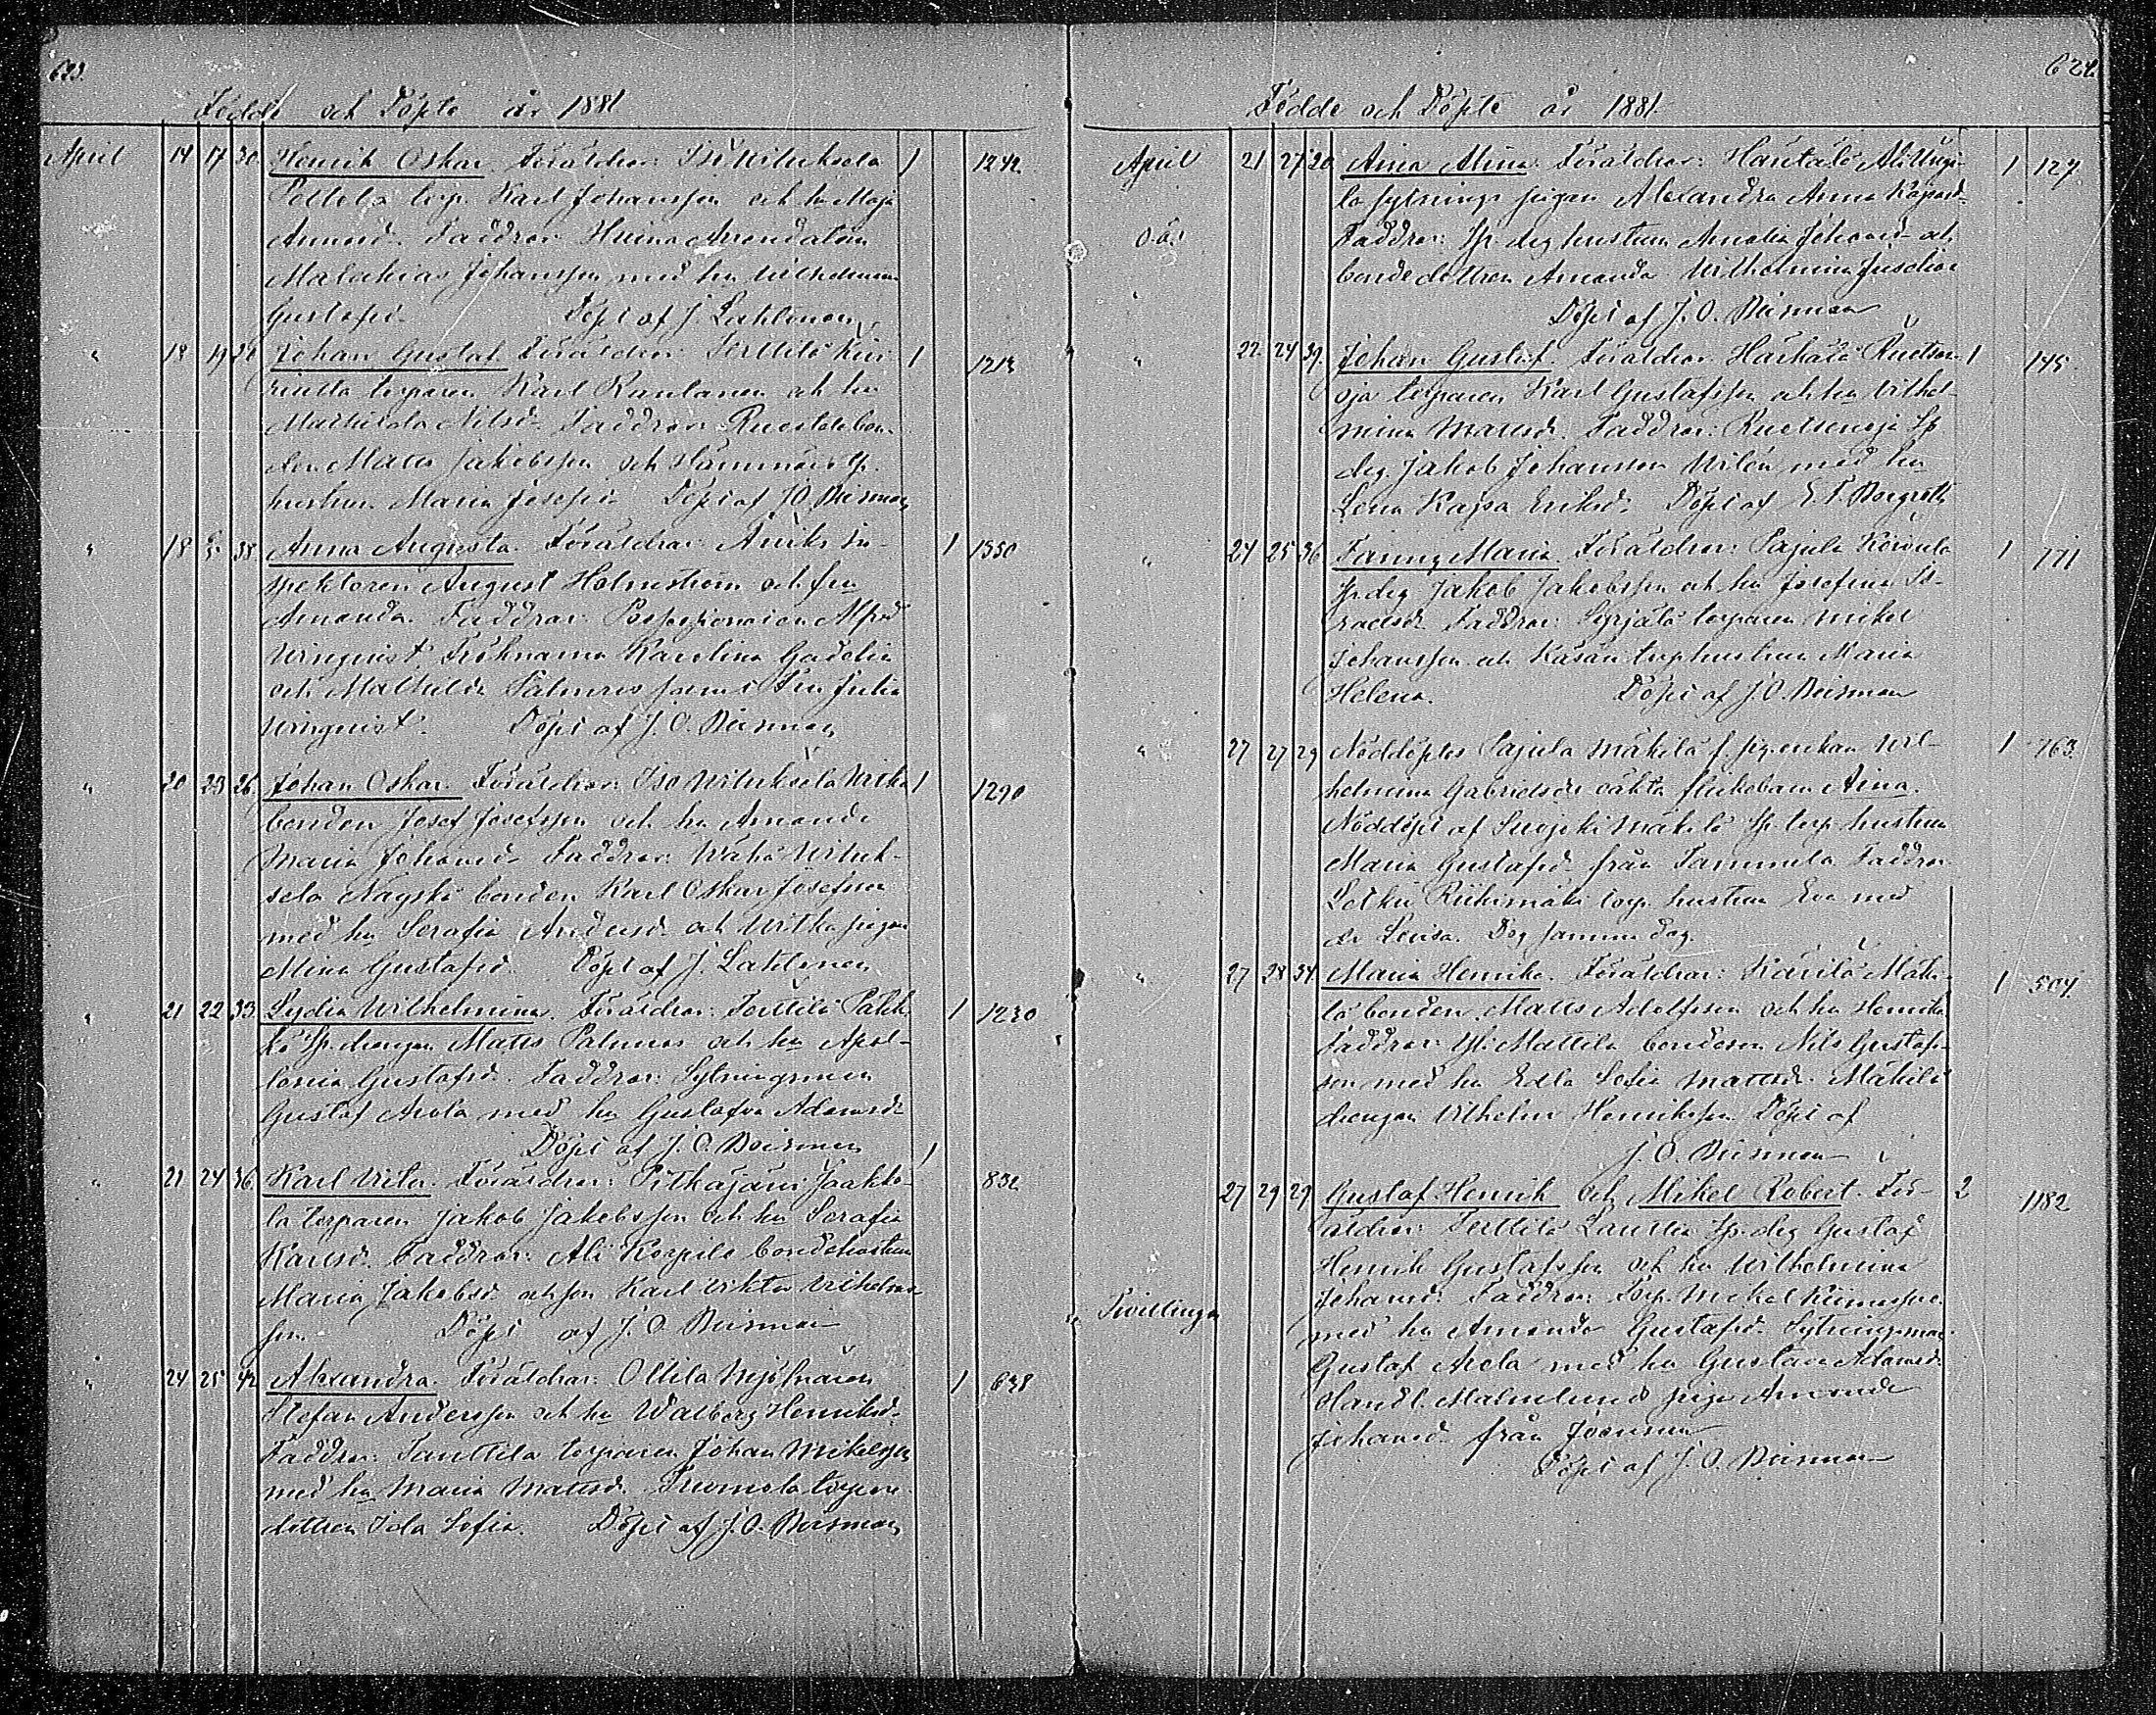 623.
Födde och Döpte år 1881
April 14 17 30 Henrik Oskar. Föräldrar: Iso Wiluksela 1 1242
Torp. Karl Johansson och hu Maja
Annasd. Faddrar:
Malakias Johansson med hu Wilhelmina
Gustafsd. Döpt af J. Lahtinen
" 18 19 Johan Gustaf. Föräldrar: Terttilä 1 1213
torparen Karl Rautanen och hu
Mathilda Nilsd. Faddrar:
Matts Jakobsson och
hustrun Maria Josefsd. Döpt af J. O. Reisman
" 18 38 Anna Augusta. Föräldrar: In- 1 1350
spektoren August Holmström och fru
Amanda. Faddrar: Possessionaten Alfred
Winquist, Fröknarna Karolina Gadolin
och Mathilda Palmros samt Fru Julia
Winquist. Döpt af J. O. Reisman
" 20 23 26 Johan Oskar. Föräldrar: Iso Wiluksela Witka 1 1290
bonden Josef Josefsson och hu Amanda
Maria Johansd. Faddrar: Wähä Wiluk-
sela Näyskä bonden Karl Oskar Josefsson
med hu Serafia Andersd. och Witka pigan
Mina Gustafsd. Döpt af J. Lahtinen
" 21 22 33 Lydia Wilhelmina. Föräldrar: Terttilä 1 1230
drengen Matts Palmros och hu Apol-
lonia Gustafsd. Faddrar: Sytningsman
Gustaf Arola med hu Gustafva Adamsd.
Döpt af J. O. Reisman
" 21 24 36 Karl Vitor. Föräldrar: Pitkäjärvi Jaakko- 1 832
la torparen Jakob Jakobsson och hu Serafia
Karlsd. Faddrar: Ali Korpila bondehustrun
Maria Jakobsd. och son Karl Viktor Vilhelms-
son. Döpt af J. O. Reisman
" 24 25 42 Alexandra. Föräldrar: Ollila Mjölnaren 1 638
Stefan Andersson och hu Walborg Henriksd.
Faddrar: Tanttila torparen Johan Mikelsson
med hu Maria Mattsd. Tuomola torpare
dottren Ida Sofia. Döpt af J. O. Reisman
624.
Födde och Döpte år 1881.
April 21 27 20 Aina Alina. Föräldrar: Hautala 1 127
la sytnings pigan Alexandra Anna Kajsasd.
o.ä. Faddrar: Sp. drg hustrun Amalia Johansd. och
bonde dottren Amanda Wilhelmina
Döpt af J. O. Reisman
" 22 24 39 Johan Gustaf. Föräldrar: Harhala Ruotsen- 1 145
oja torparen Karl Gustafsson och hu Vilhel-
mina Mattsd. Faddrar: Ruotsenoja Sp
drg. Jakob Johansson Wilén med hu
Lena Kajsa Eriksd. Döpt af E. F. Bergroth
" 24 25 36 Fanny Maria. Föräldrar: Pajula Koivula 1 771
Sp. drg Jakob Jakobsson och hu Josefina Is-
raelsd. Faddrar: Syrjälä torparen Mikel
Johansson och torphustrun Maria
Helena. Döpt af J. O. Reisman
" 27 27 29 Nöddöptes Pajula Mäkilä f. Wil- 1 763
helmina Gabrielsds oäkta flickebarn Aina.
Nöddöpt af Suojoki Mäkilä Sp. torp. hustrun
Maria Gustafsd. från Tammela. Faddrar:
Letku Riihimäki torp. hustrun Eva med
dr Lovisa. Dog samma dag.
" 27 28 34 Maria Henrika. Föräldrar: Kärilä Mäki- 1 504
lä bonden Matts Adolfsson och hu Henrika
Faddrar: Yli Mattila bondeson Nils Gustafs-
son med hu Edla Sofia Mattsd. Mäkilä
drengen Vilhelm Henriksson. Döpt af
J. O. Reisman
" Tvillingar 27 29 29 Gustaf Henrik och Mikel Robert. För- 2 1182
äldrar: Terttilä Laurila Sp. drg Gustaf
Henrik Gustafsson och hu Wilhelmina
Johansd. Faddrar: Torp. Mikel
med hu Amanda Gustafsd. Sytningsman
Gustaf Arola med hu Gustava Adamsd.
Handl. Malmlunds piga Amanda
Johansd. från
Döpt af J. O. Reisman